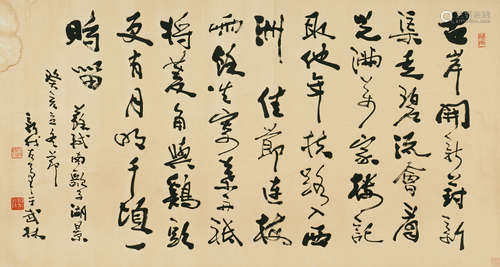 古岸開新葑新
渠走碧流會看
光滿萬家樓記
取他年扶路入西
洲佳節連梅
雨餘生寄葉舟祗
將菱角與鷄頭
更有月明千頃一
時留
蘇軾南歌子湖景
癸亥立冬節
武林